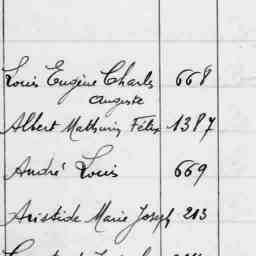 Louis Eugène Charles 668
Auguste
Albert Mathurin Félix 1387
André Louis 669
Aristide Marie Joseph 213